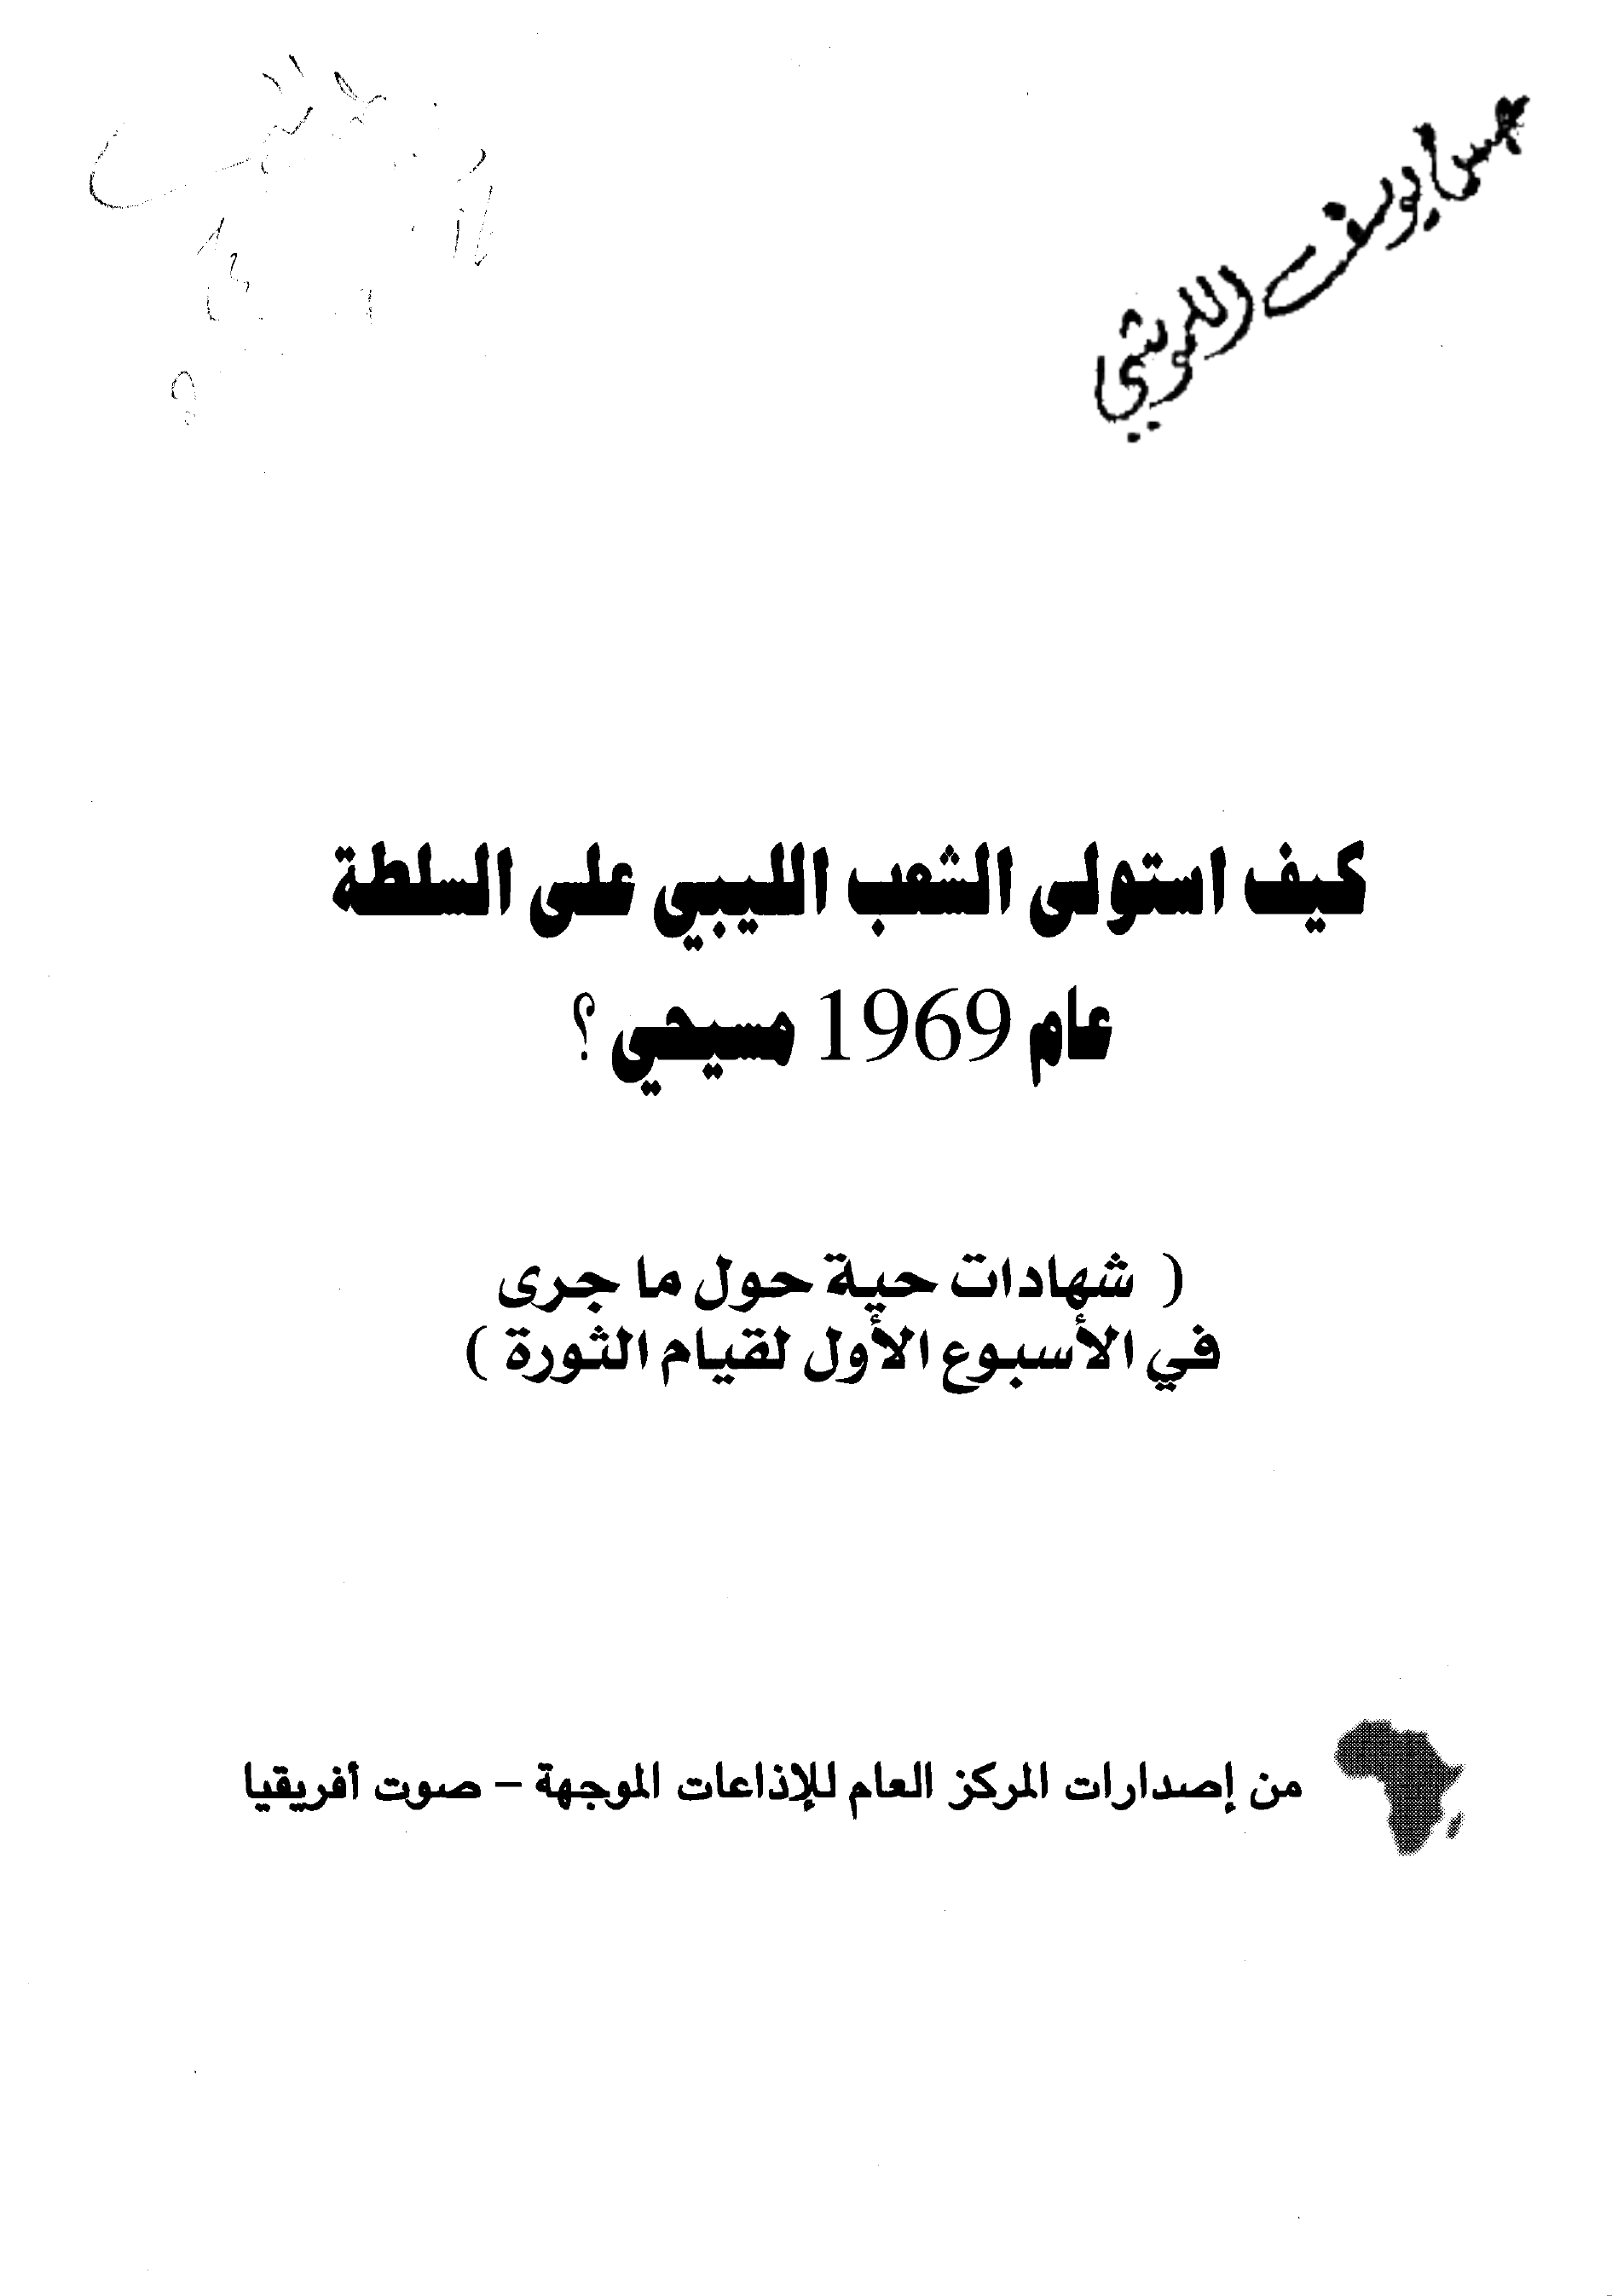 يوسف
كيف استولى الشعب الليبي على السلطة
عام 1969 مسيحي ؟
( شهادات حية حول ما جرى
في الأسبوع الأول لقيام الثورة )
من إصدارات المركز العام للإذاعات الموجهة – صوت أفريقيا